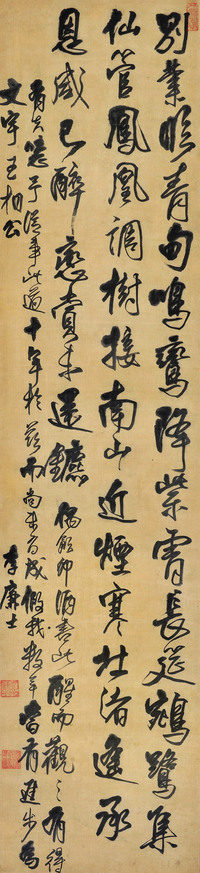 別業臨青甸鳴鑾降紫霄長筵鵷鷺集
仙管鳳凰調樹接南山近煙寒北渚遙承
恩咸已醉戀賞未還鑣 偶飲卯酒書此醒而觀之有得
有失嗟予從事此道十年於茲而尚未有成假我數年當有進步為
文宇王相公 李廉士